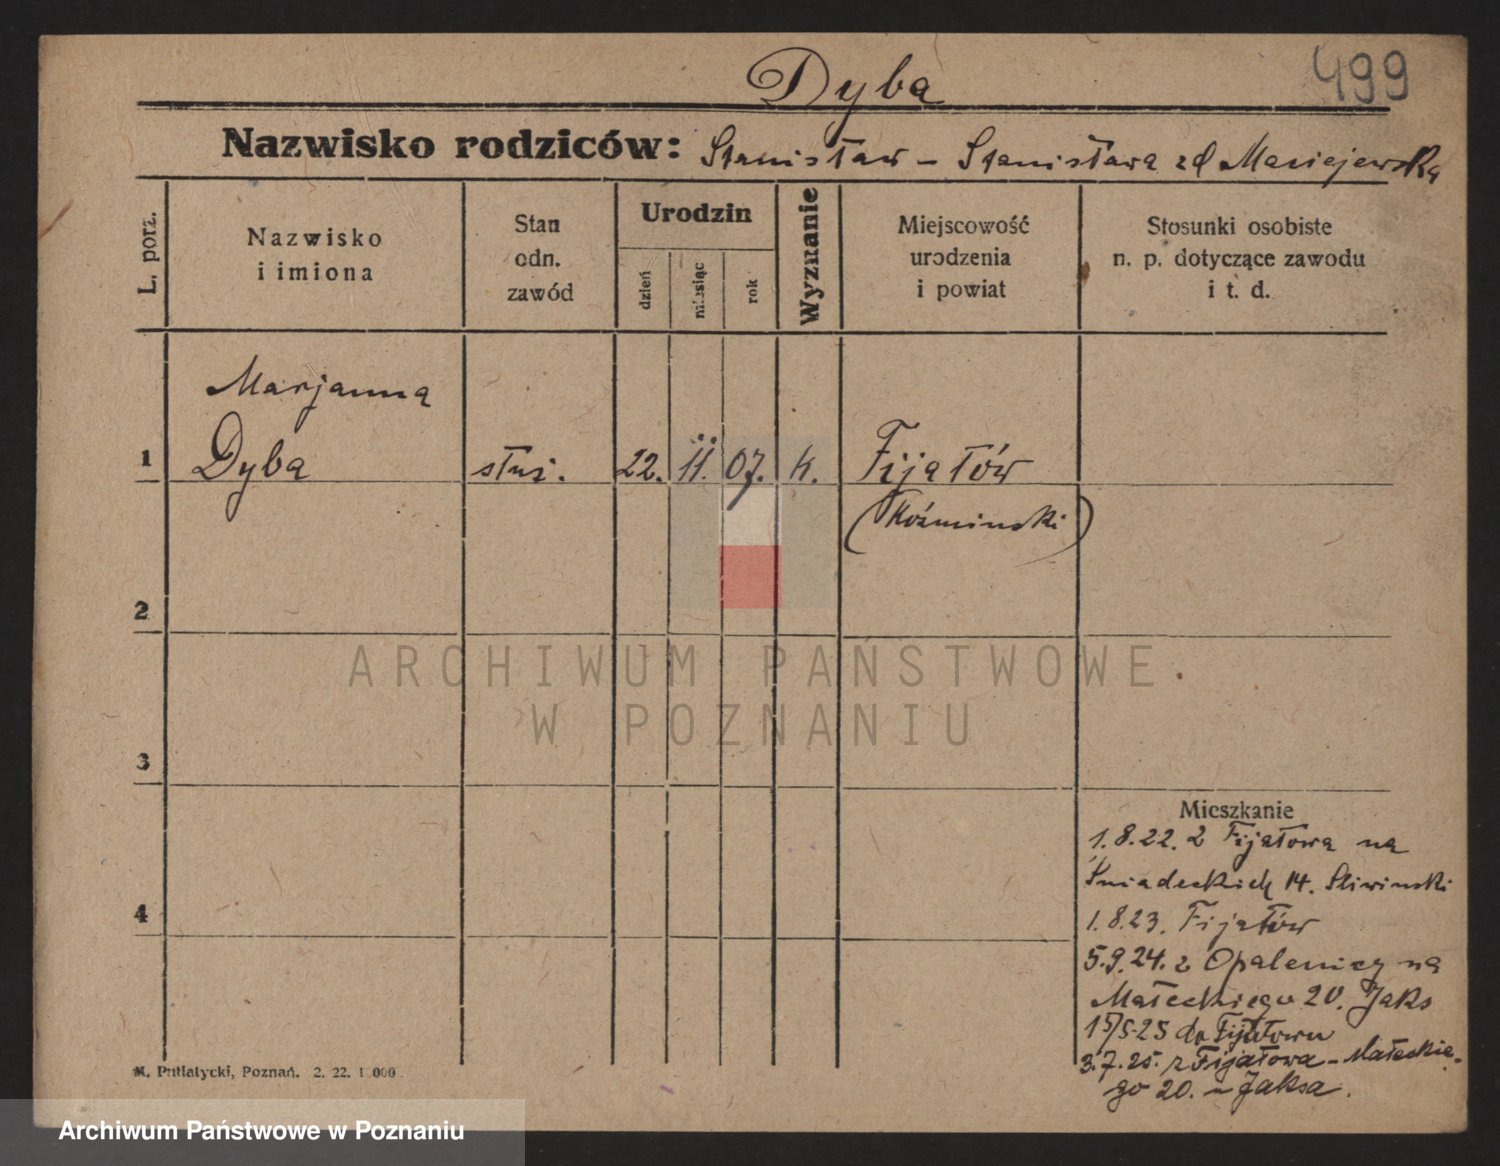 Dyba
499
Nazwisko rodziców: Stanisław – Stanisława zd Maciejewska
L. porz.
Nazwisko
i imiona
Stan
odn.
zawód
Urodzin
dzień
miesiąc
rok
Wyznanie
Miejscowość
urodzenia
i powiat
Stosunki osobiste
n. p. dotyczące zawodu
i t. d.
Marjanna
1 Dyba służ. 22. 11. 07. k. Fijałów
(Koźminski)
2
ARCHIWUM PAŃSTWOWE
W POZNANIU
3
Mieszkanie
1.8.22. z Fijałowa na
Śniadeckich 14. Sliwinski
4
1.8.23. Fijałów
5.9.24. z Opalenicy na
Małeckiego 20. Jaks
15/5-25 do Fijałowa
3.7.25. z Fijałowa – Małeckie-
go 20. u Jaksa.
M. Putiatycki, Poznań. 2. 22. 1 000
Archiwum Państwowe w Poznaniu